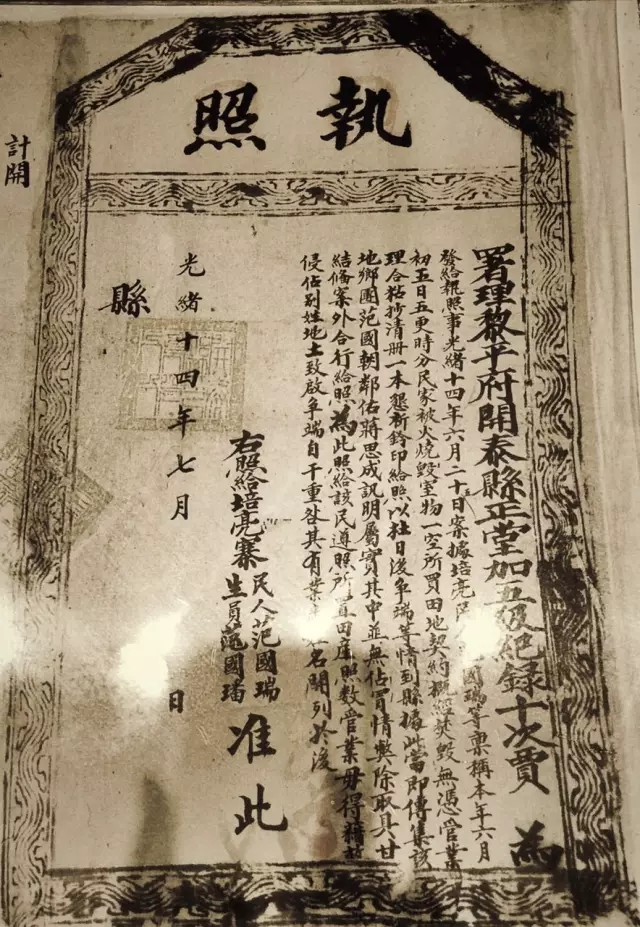 執照
署理黎平府開泰縣正堂加五級紀錄十次賈 為
發給執照事光緒十四年六月二十日案據培亮國瑞等稟稱本年六月
初五日五更時分民家被火燒毀室物一空所買田地契約概經焚毀無憑管業
理合粘抄清冊一本懇祈鈐印給照以杜日後争端等情到縣據此當即傳集該
地鄉團范國朝鄰佑蔣思成訊明屬實其中並無佔冒情弊除取具甘
結備案外合行給照為此照給該民遵照所置田產照數管業毋得藉
侵佔別姓地土致啟争端自干重咎其有業名開列於後
右照給培亮寨
民人范國瑞
生員范國璠
准此
光緒十四年七月 日
縣
計開